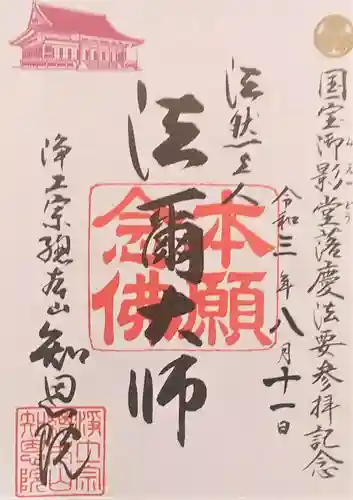 国宝御影堂落慶法要参拝記念
みえいどう
令和三年八月十一日
法然上人
法爾大師
本願
念佛
浄土宗總本山
知恩院
浄土宗
總本山
知恩院